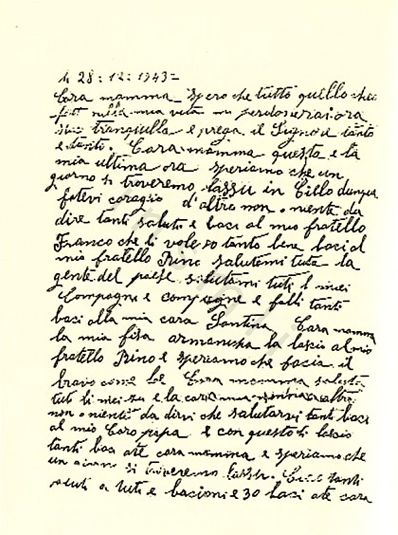 li 28 : 12 : 1943 =
Cara mamma_ spero che tutto quello che o
fatt nella mia vita mi perdonerai ora
stai tranquilla e prega il Signore tanto
e tanti. Cara mamma questa e la
mia ultima ora speriamo che un
giorno si troveremo lassu in Cielo dunque
fatevi coragio d'altro non o niente da
dire tanti saluti e baci al mio fratello
Franco che li voleso tanto bene baci al
mio fratello Pino salutemi tuta la
gente del paese salutami tuti i miei
Compagni e compagne e falli tanti
baci alla mia cara Santina Cara mamma
la mia fisa armonica la lascio al mio
fratello Pino e speriamo che facia il
bravo come me Cara mamma saluta
tuti li miei zii e la cara mia nonnina altro
non o niente da dirvi che salutarvi tanti baci
al mio Caro papa e con questo ti lascio
tanti baci ate cara mamma e speriamo che
un giorno si troveremo lassu. tanti
saluti a tuti e bacioni e 30 baci ate cara